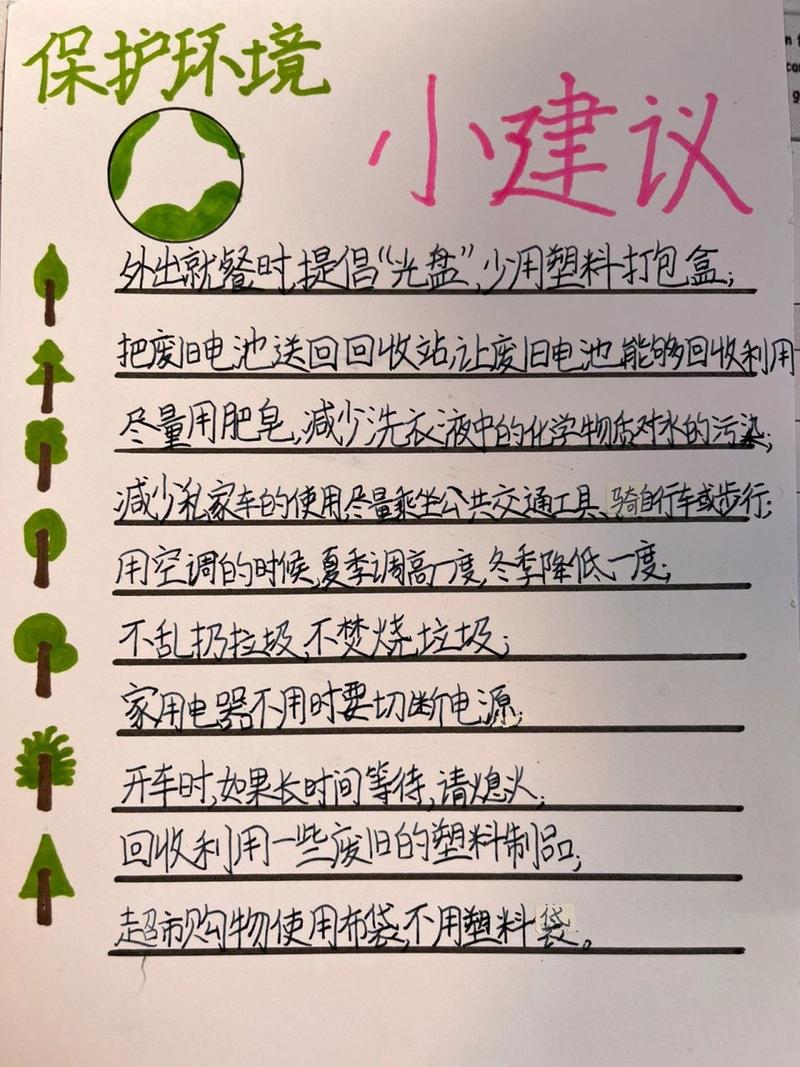 保护环境
小建议
外出就餐时,提倡“光盘”,少用塑料打包盒;
把废旧电池送回回收站,让废旧电池能够回收利用
尽量用肥皂,减少洗衣液中的化学物质对水的污染;
减少私家车的使用,尽量乘坐公共交通工具、骑自行车或步行;
用空调的时候,夏季调高一度,冬季降低一度;
不乱扔垃圾,不焚烧垃圾;
家用电器不用时要切断电源;
开车时,如果长时间等待,请熄火;
回收利用一些废旧的塑料制品;
超市购物使用布袋,不用塑料袋。